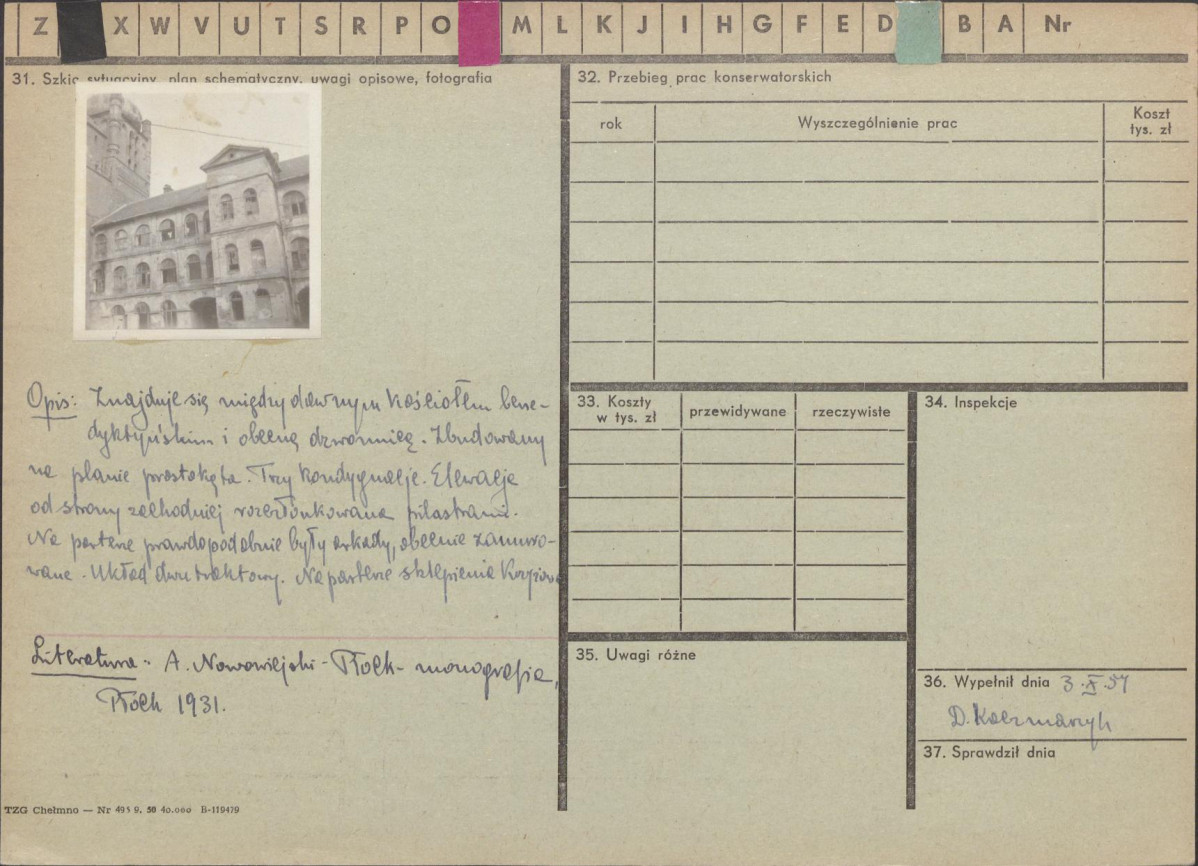 Z X W V U T S R P O M L K J I H G F E D B A Nr
31. Szkic sytuacyjny, plan schematyczny, uwagi opisowe, fotografia
Opis: Znajduje się między dawnym kościołem bene-
dyktyńskim i obecną dzwonnicą. Zbudowany
na planie prostokąta. Trzy kondygnacje. Elewacje
od strony zachodniej rozczłonkowana pilastrami.
Na parterze prawdopodobnie były arkady, obecnie zamuro-
wane. Układ dwutraktowy. Na parterze sklepienia krzyżowe
Literatura: A. Nowowiejski - Płock - monografia,
Płock 1931.
TZG Chełmno — Nr 495 9. 50 40.000 B-119479
32. Przebieg prac konserwatorskich
rok Wyszczególnienie prac Koszt
tys. zł
33. Koszty
w tys. zł przewidywane rzeczywiste
34. Inspekcje
35. Uwagi różne
36. Wypełnił dnia 3.X.59
D. Kaczmarzyk
37. Sprawdził dnia